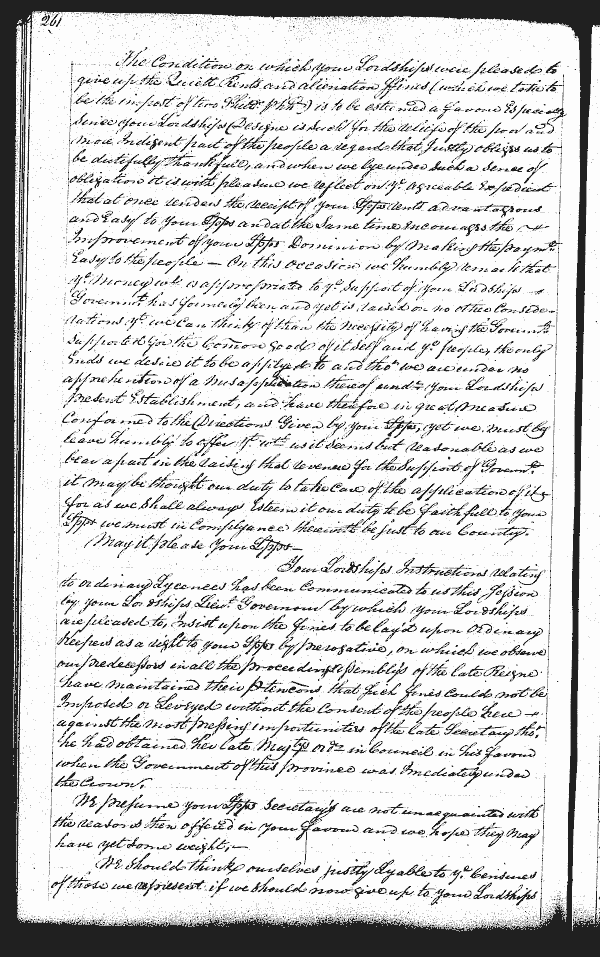 261
The Condition on which your Lordships were pleased to
give up the Quitt Rents and alienation ffines (which we take to
be the impost of two Shill: P hhd) is to be esteemed a favour Especially
since your Lordships Designe is such for the reliefe of the poor and
more Indigent part of the people a regard that Justly obliges us to
be dutifully thankfull, and when we lye under such a sence of
obligation it is with pleasure we reflect on ye agreeable Expedient
that at once renders the receipt of your Lpps rents advantagious
and Easy to your Lpps and at the Same time Encourages the
Improvement of your Lpps Dominion by making the paymt
Easy to the people — On this occasion we humbly remark that
ye money wch is appropriated to ye Support of your Lordships
Governmt has formerly been and yet is raised on no other Conside-
rations yt we can think of than the necessity of having the Governmt
Supported for the Comon good of it self and ye people, the only
Ends we desire it to be applyed to and tho' we are under no
apprehention of a misapplication thereof undr your Lordships
present Establishment, and have therefore in great measure
Conformed to the Directions Given by your Lpps, yet we must beg
leave humbly to offer yt wth us it seems but reasonable as we
bear a part in the raising that revenue for the Support of Governmt
it may be thought our duty to take care of the application of it
for as we shall always esteem it our duty to be faithfull to your
Lpps we must in Complyance therewith be just to our County.
May it please Your Lpps —
Your Lordships Instructions relating
to ordinary Lycences has been Communicated to us this Session
by your Lordships Lieut Governour by which your Lordships
are pleased to insist upon the fines to be lay'd upon Ordinary
keepers as a right to your Lpps by prerogative, on which we observe
our predecessors in all the proceeding Assemblys of the late Reigne
have maintained their pretencons that such fines could not be
Imposed or Levyed without the Consent of the people here
against the most pressing importunities of the late Secretary tho'
he had obtained her late Majtys ordr in Council in his favour
when the Government of this province was Imediately under
the Crown.
We presume your Lpps Secretarys are not unacquainted with
the reasons then offered in your favour and we hope they may
have yet some weight. —
We should think ourselves justly Lyable to ye Censures
of those we represent if we should now give up to your Lordships